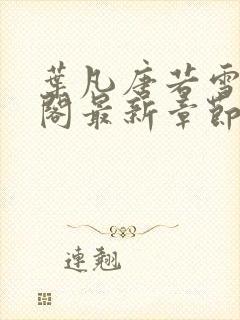 葉凡唐若雪
閣最新章節
連翹